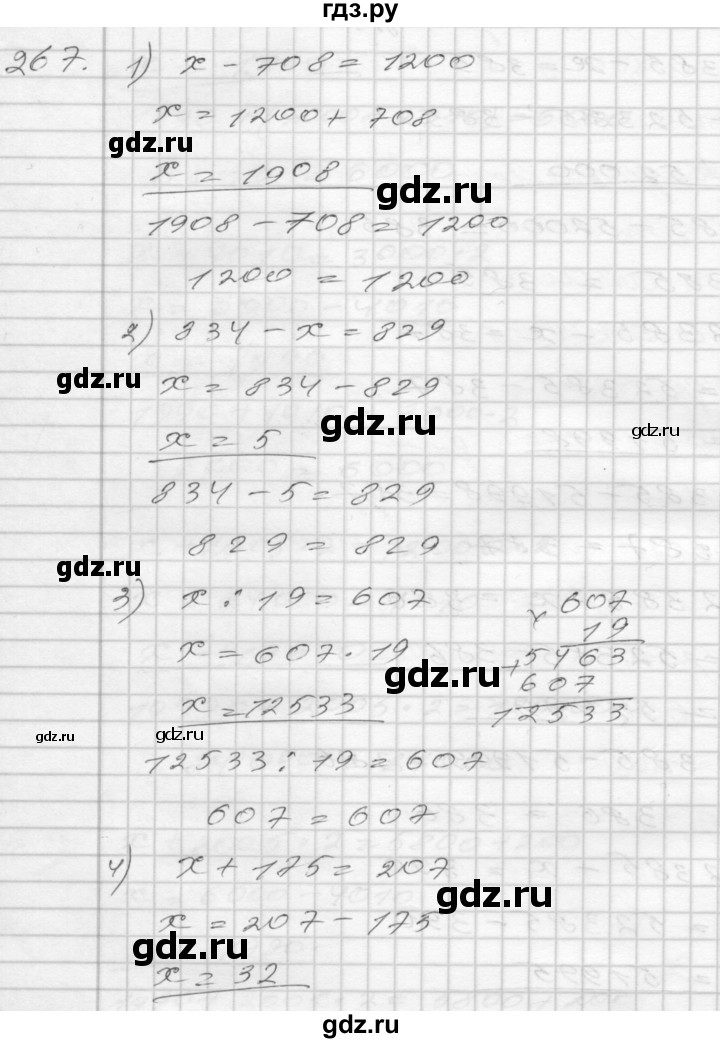 гдз.ру
267. 1) x - 708 = 1200
x = 1200 + 708
gdz.ru
x = 1908
gdz.ru
1908 - 708 = 1200
1200 = 1200
2) 834 - x = 829
gdz.ru
x = 834 - 829
gdz.ru
gdz.ru
x = 5
834 - 5 = 829
829 = 829
gdz.ru
3) x : 19 = 607
x = 607 · 19
gdz.ru
x = 12533
× 607
19
+ 5463
607
12533
gdz.ru
gdz.ru
12533 : 19 = 607
607 = 607
4) x + 175 = 207
gdz.ru
x = 207 - 175
gdz.ru
x = 32
gdz.ru